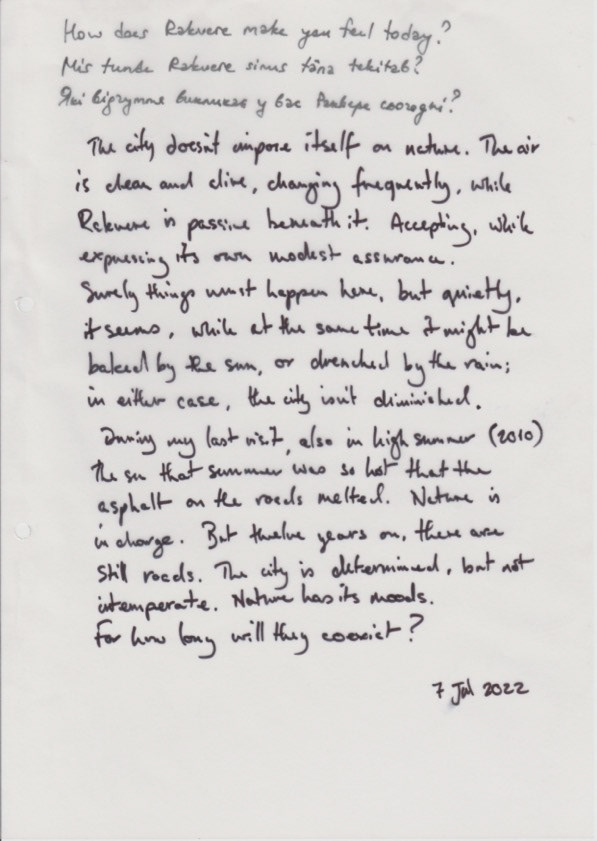 How does Rakvere make you feel today?
Mis tunde Rakvere sinus täna tekitab?
Які відчуття викликає у вас Раквере сьогодні?
The city doesn't impose itself on nature. The air
is clean and alive, changing frequently, while
Rakvere is passive beneath it. Accepting, while
expressing its own modest assurance.
Surely things must happen here, but quietly,
it seems, while at the same time it might be
baked by the sun, or drenched by the rain;
in either case, the city isn't diminished.
During my last visit, also in high summer (2010)
the sun that summer was so hot that the
asphalt on the roads melted. Nature is
in charge. But twelve years on, there are
still roads. The city is determined, but not
intemperate. Nature has its moods.
For how long will they coexist?
7 Jul 2022